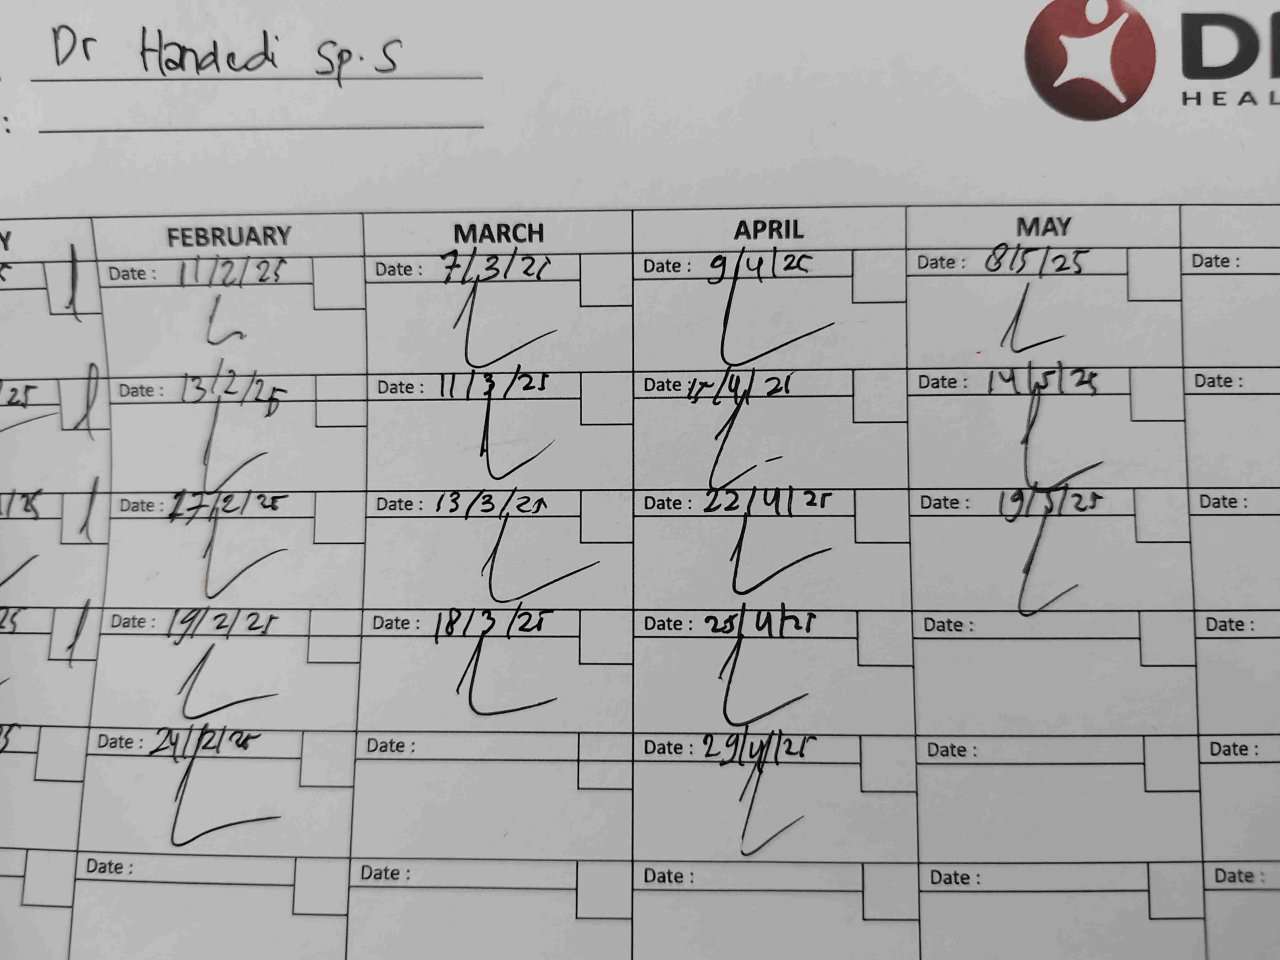 Dr Handedi Sp.S
:
DI
HEAL
Y FEBRUARY MARCH APRIL MAY
5 Date : 11/2/25 Date : 7/3/25 Date : 9/4/25 Date : 8/5/25 Date :
25 Date : 13/2/25 Date : 11/3/25 Date : 15/4/25 Date : 14/5/25 Date :
1/25 Date : 17/2/25 Date : 13/3/25 Date : 22/4/25 Date : 19/5/25 Date :
25 Date : 19/2/25 Date : 18/3/25 Date : 25/4/25 Date : Date :
5 Date : 24/2/25 Date : Date : 29/4/25 Date : Date :
Date : Date : Date : Date : Date :